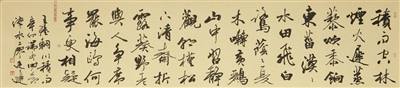 積雨空林
煙火遲
蒸藜炊黍餉
東菑漠〻
水田飛白
鷺蔭〻夏
木囀黃鸝
山中習靜
觀朝槿松
下清齋折
露葵野老
與人爭席
罷海鷗何
事更相疑
王維輞川積雨
辛卯